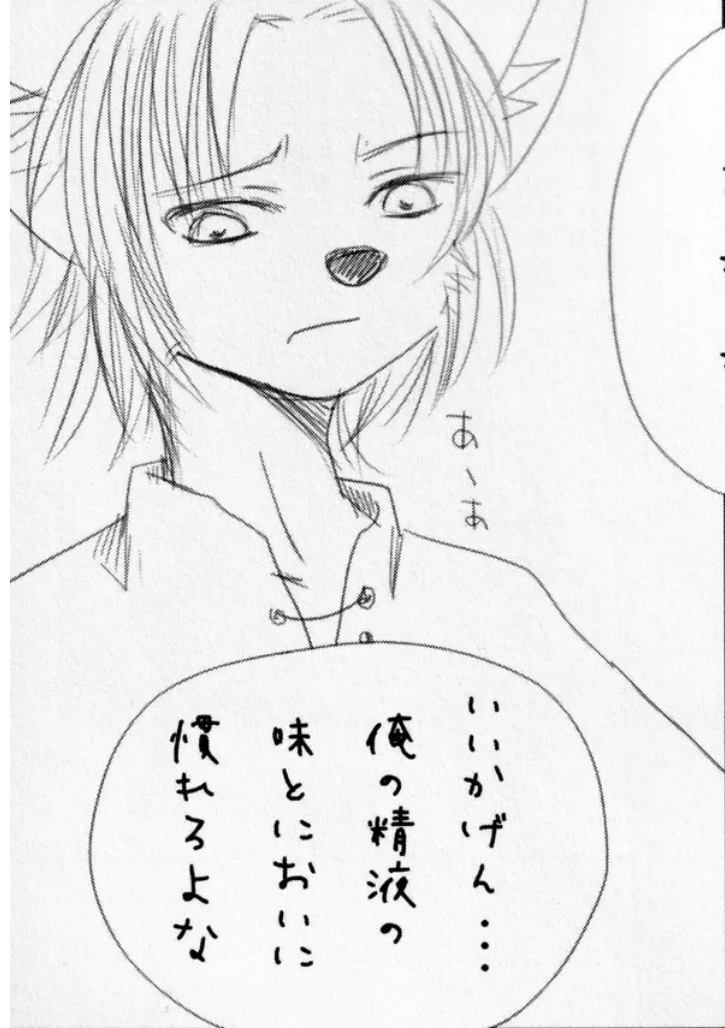 あ〜あ
いいかげん・・・
俺の精液の
味とにおいに
慣れろよな